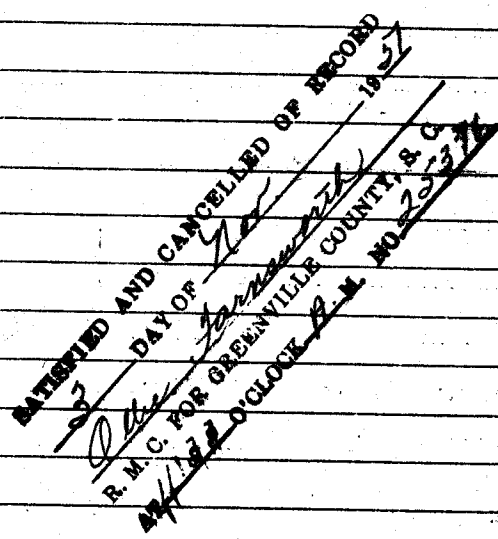 SATISFIED AND CANCELLED OF RECORD
DAY OF Nov 1957
Ollie Farnsworth
R. M. C. FOR GREENVILLE COUNTY, S. C.
AT O'CLOCK A. M. NO. 25376